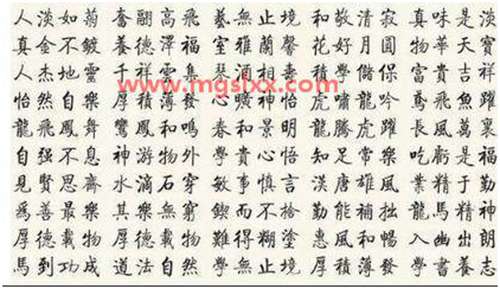 人淡如菊 奮翮高飛 藝無止境 和敬清寂 真味是淡
真金不鍍 養德澤福 室雅蘭馨 花好月圓 物華天寶
人杰地靈 千祥雲集 琴相壽 積學儲保 富貴吉祥
怡然自樂 厚積薄發 心曠神怡 虎嘯龍吟 鳶飛魚躍
龍飛鳳舞 鸞鳳和鳴 春和景明 龍騰虎躍 長風萬裏
自强不息 神游物外 學貴心悟 知足常樂 吃虧是福
見賢思齋 水滴石穿 敏事慎言 漢唐雄風 業精于勤
為善最樂 其樂無窮 鍥而不捨 勤能補拙 龍馬精神
厚德載物 厚德載物 難得糊塗 惠風和暢 入幽出朗
馬到功成 道法自然 學無止境 厚積薄發 學書養志
www.mgslxx.com